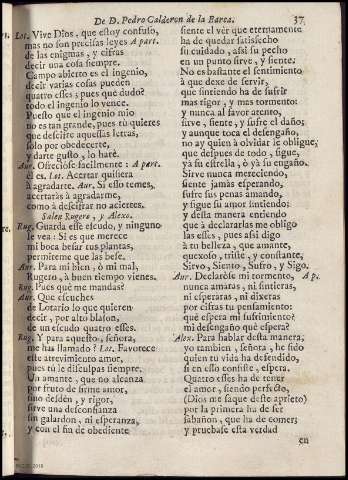 De D. Pedro Calderon de la Barca.
37
Lot. Vive Dios, que estoy confuso,
mas no son precisas leyes A part.
de las enigmas, y cifras
decir una cosa siempre.
Campo abierto es el ingenio,
decir varias cosas pueden
quatro esses; pues què dudo?
todo el ingenio lo vence.
Puesto que el ingenio mio
no es tan grande, pues tù quieres
que descifre aquessas letras,
solo por obedecerte,
y darte gusto, lo harè.
Aur. Ofreciòle facilmente: A part.
èl es. Lot. Acertar quisiera
à agradarte. Aur. Si esso temes,
acertaràs à agradarme,
como à descifrar no aciertes.
Salen Rugero, y Alexo.
Rug. Guarda esse escudo, y ninguno
le vea: Si es que merece
mi boca besar tus plantas,
permiteme que las bese.
Aur. Para mi bien, ò mi mal,
Rugero, à buen tiempo vienes.
Rug. Pues què me mandas?
Aur. Que escuches
de Lotario lo que quieren
decir, por alto blason,
de un escudo quatro esses.
Rug. Y para aquesto, señora,
me has llamado? Lot. Favorece
este atrevimiento amor,
pues tù le disculpas siempre.
Un amante, que no alcanza
por fruto de firme amor,
sino desdèn, y rigor,
sirve una desconfianza
sin galardon, ni esperanza,
y con el fin de obediente
siente el vèr que eternamente
ha de quedar satisfecho
su cuidado, assi su pecho
en un punto sirve, y siente.
No es bastante el sentimiento
à que dexe de servir,
que sintiendo ha de sufrir
mas rigor, y mas tormento:
y nunca al favor atento,
sirve, siente, y sufre el daño;
y aunque toca el desengaño,
no ay quien à olvidar le obligue;
que despues de todo, sigue,
ya su estrella, ò ya su engaño.
Sirve nunca mereciendo,
siente jamàs esperando,
sufre sus penas amando,
y sigue su amor sintiendo;
y desta manera entiendo
que à declararlas me obligo
las esses, pues assi digo
à tu belleza, que amante,
quexoso, triste, y constante,
Sirvo, Siento, Sufro, y Sigo.
Aur. Declaròle mi tormento, A p.
nunca amaras, ni sintieras,
ni esperaras, ni dixeras
por cifras tu pensamiento:
què espera mi sufrimiento?
mi desengaño què espera?
Alex. Para hablar desta manera,
yo tambien, señora, he sido
quien tu vida ha defendido,
si en esso consiste, espera.
Quatro esses ha de tener
el amor, siendo perfecto,
(Dios me saque deste aprieto)
por la primera ha de ser
sabañon, que ha de comer;
y pruebase esta verdad
en